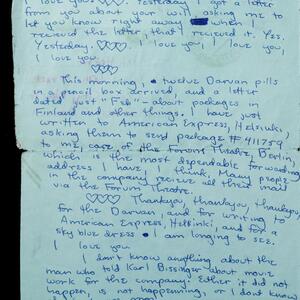 I love you. ♡♡♡ Yesterday, I got a letter
from you about your away, asking me to
let you know right away when I
recieved the letter, that I recieved it. Yes.
Yesterday. ♡♡♡ I love you, I love you,
I love you.
♡♡♡
This morning, twelve Darvan pills
in a pencil box arrived, and a letter
dated just "Feb" - about packages in
Finland and other things. I have just
written to American Express, Helsinki,
asking them to send package # 411759
to me, care of the Forum Theatre, Berlin,
which is the most dependable forwarding
address I have, I think. Many people
in the company recieve all their mail
via the Forum Theatre.
♡♡♡ Thankyou, thankyou, thankyou
for the Darvan, and for writing to
American Express, Helsinki, and for a
sky blue dress I am longing to see.
I love you
I don't know anything about the
man who told Karl Bissinger about movie
work for the company. Either it did not
happen, is not happening, or I don't know